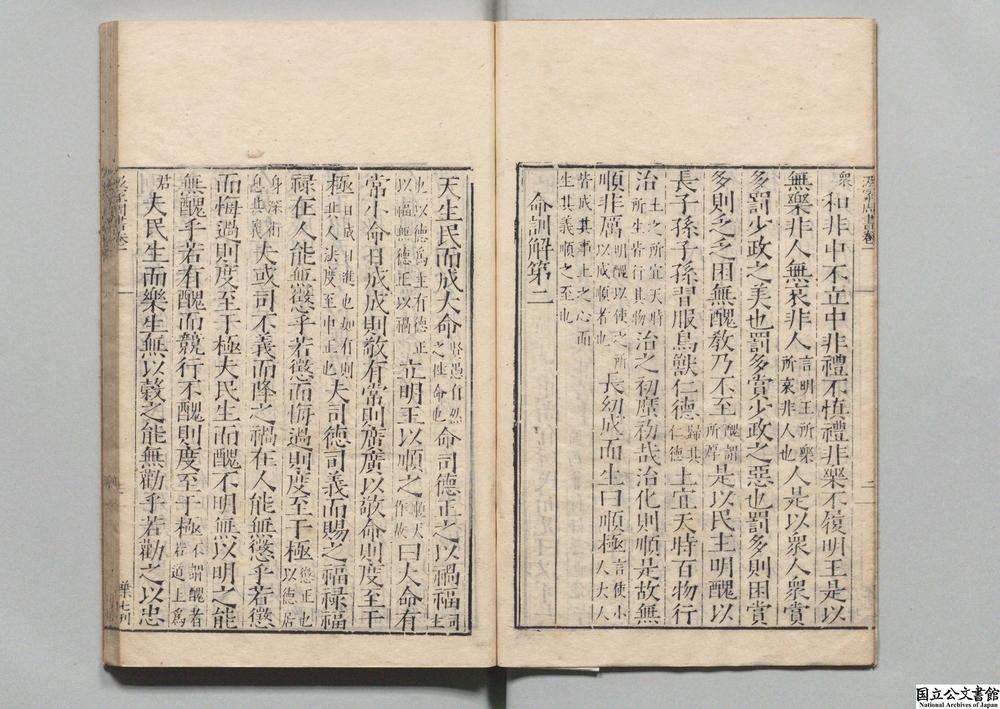 汲冢周書卷一
衆
和非中不立中非禮不慎禮非樂不履明王是以
無樂非人無哀非人言明王所樂所哀非人也人是以衆人衆賞
多罰少政之美也罰多賞少政之惡也罰多則困賞
多則乏乏困無醜教乃不至醜謂所尊是以民主明醜以
長子孫子孫習服鳥獸仁德歸其仁德土宜天時百物行
治土之所宜天時所生皆行其物治之初厲初哉治化則順是故無
順非厲明醜以使之所以成順者也長幼成而生曰順極言使小人大人
皆成其事上之心而生其義順之至也
命訓解第二
天生民而成大命賢愚自然之性命也命司德正之以禍福司主
也以德為主有德正以福無德正以禍立明王以順之順天作故曰大命有
常小命日成成則敬有常則廣廣以敬命則度至于
極日成日進也如有則其人法度至中正也夫司德司義而賜之福祿福
祿在人能無懲乎若懲而悔過則度至于極懲正也以德居
身深術息其義夫或司不義而降之禍在人能無懲乎若懲
而悔過則度至于極夫民生而醜不明無以明之能
無醜乎若有醜而競行不醜則度至于極不謂醜者若道上為
君
夫民生而樂生無以穀之能無勸乎若勸之以忠
國立公文書館
National Archives of Japan